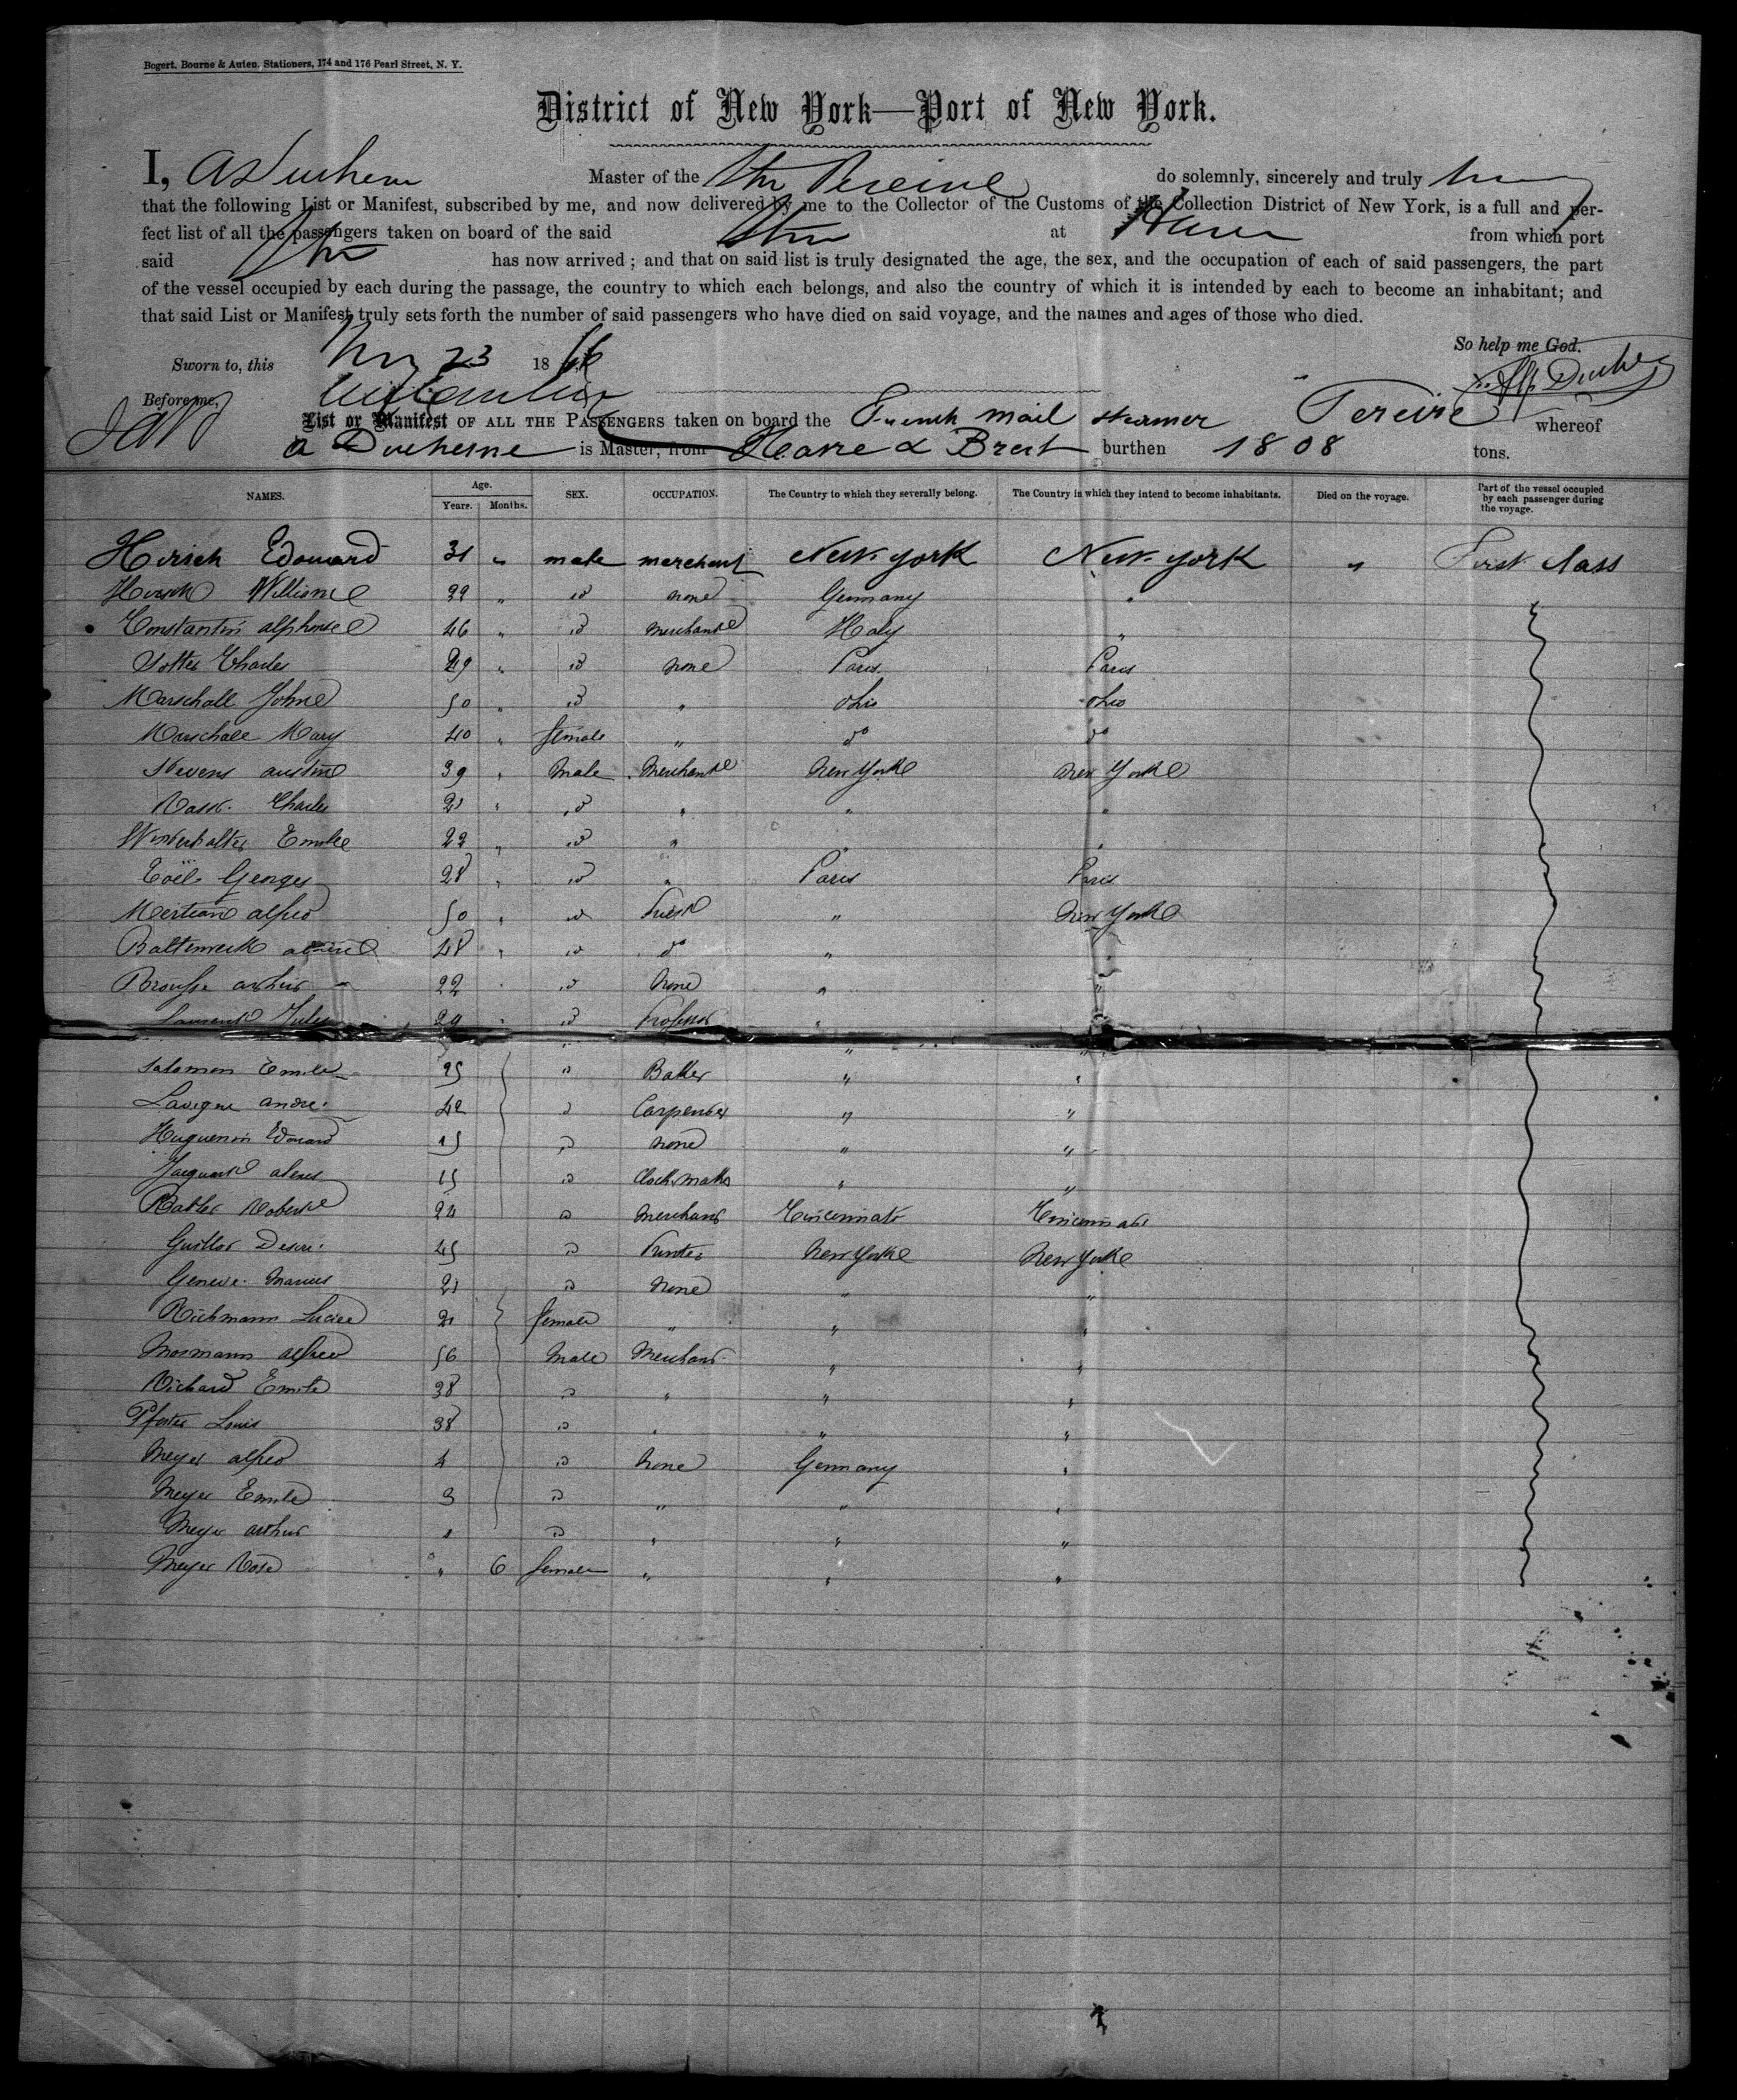 Bogert, Bourne & Auten, Stationers, 174 and 176 Pearl Street, N. Y.
District of New York—Port of New York.
I, A Duchesne Master of the Str Pereire do solemnly, sincerely and truly
that the following List or Manifest, subscribed by me, and now delivered by me to the Collector of the Customs of the Collection District of New York, is a full and per-
fect list of all the passengers taken on board of the said Str at Havre from which port
said Str has now arrived; and that on said list is truly designated the age, the sex, and the occupation of each of said passengers, the part
of the vessel occupied by each during the passage, the country to which each belongs, and also the country of which it is intended by each to become an inhabitant; and
that said List or Manifest truly sets forth the number of said passengers who have died on said voyage, and the names and ages of those who died.
So help me God.
Sworn to, this 23 1866
Before me,
List or Manifest OF ALL THE PASSENGERS taken on board the French mail steamer Pereire whereof
A Duchesne is Master, from Havre & Brest burthen 1808 tons.
NAMES. Age. Years. Months. SEX. OCCUPATION. The Country to which they severally belong. The Country in which they intend to become inhabitants. Died on the voyage. Part of the vessel occupied by each passenger during the voyage.
Hirsch Edouard 31 " male merchant New York New York " First class
Hirsch 22 " id none Germany "
Constantin alphonse 46 " id merchant Italy "
Charles 29 " id none Paris Paris
Marschall John 50 " id " ohio ohio
Marschall Mary 40 " female " do do
Stevens austin 39 " Male Merchant New York New York
Charles 21 " id " " "
Winterhalter Emile 22 " id " " "
Georges 28 " id " Paris Paris
Mertian alfred 50 " id Priest " New York
48 " id do " "
Brousse arthur 22 " id None " "
Laurent Jules 29 " id Professor " "
Salomon Emile 25 id Baker " "
Lavigne andre 42 id Carpenter " "
Huguenin Edouard 15 id none " "
15 id Clock maker " "
Robert 24 id Merchant Cincinnati Cincinnati
Guillot 45 id New York New York
Geneve Marius 21 id None " "
Richmann Lucie 21 female " " "
Mosmann alfred 56 Male Merchant " "
Richard Emile 38 id " " "
Louis 38 id " " "
Meyer alfred 4 id None Germany "
Meyer Emile 3 id " " "
Meyer arthur 1 id " " "
Meyer Rosa " 6 female " " "